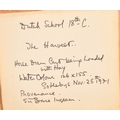 Dutch School 18th C.
The Harvest.
Horse Drawn Cart being Loaded
with Hay
Water Colour 106 x 155
Sothebys Nov. 25th 1971
Provenance.
Sir Bruce Ingram.